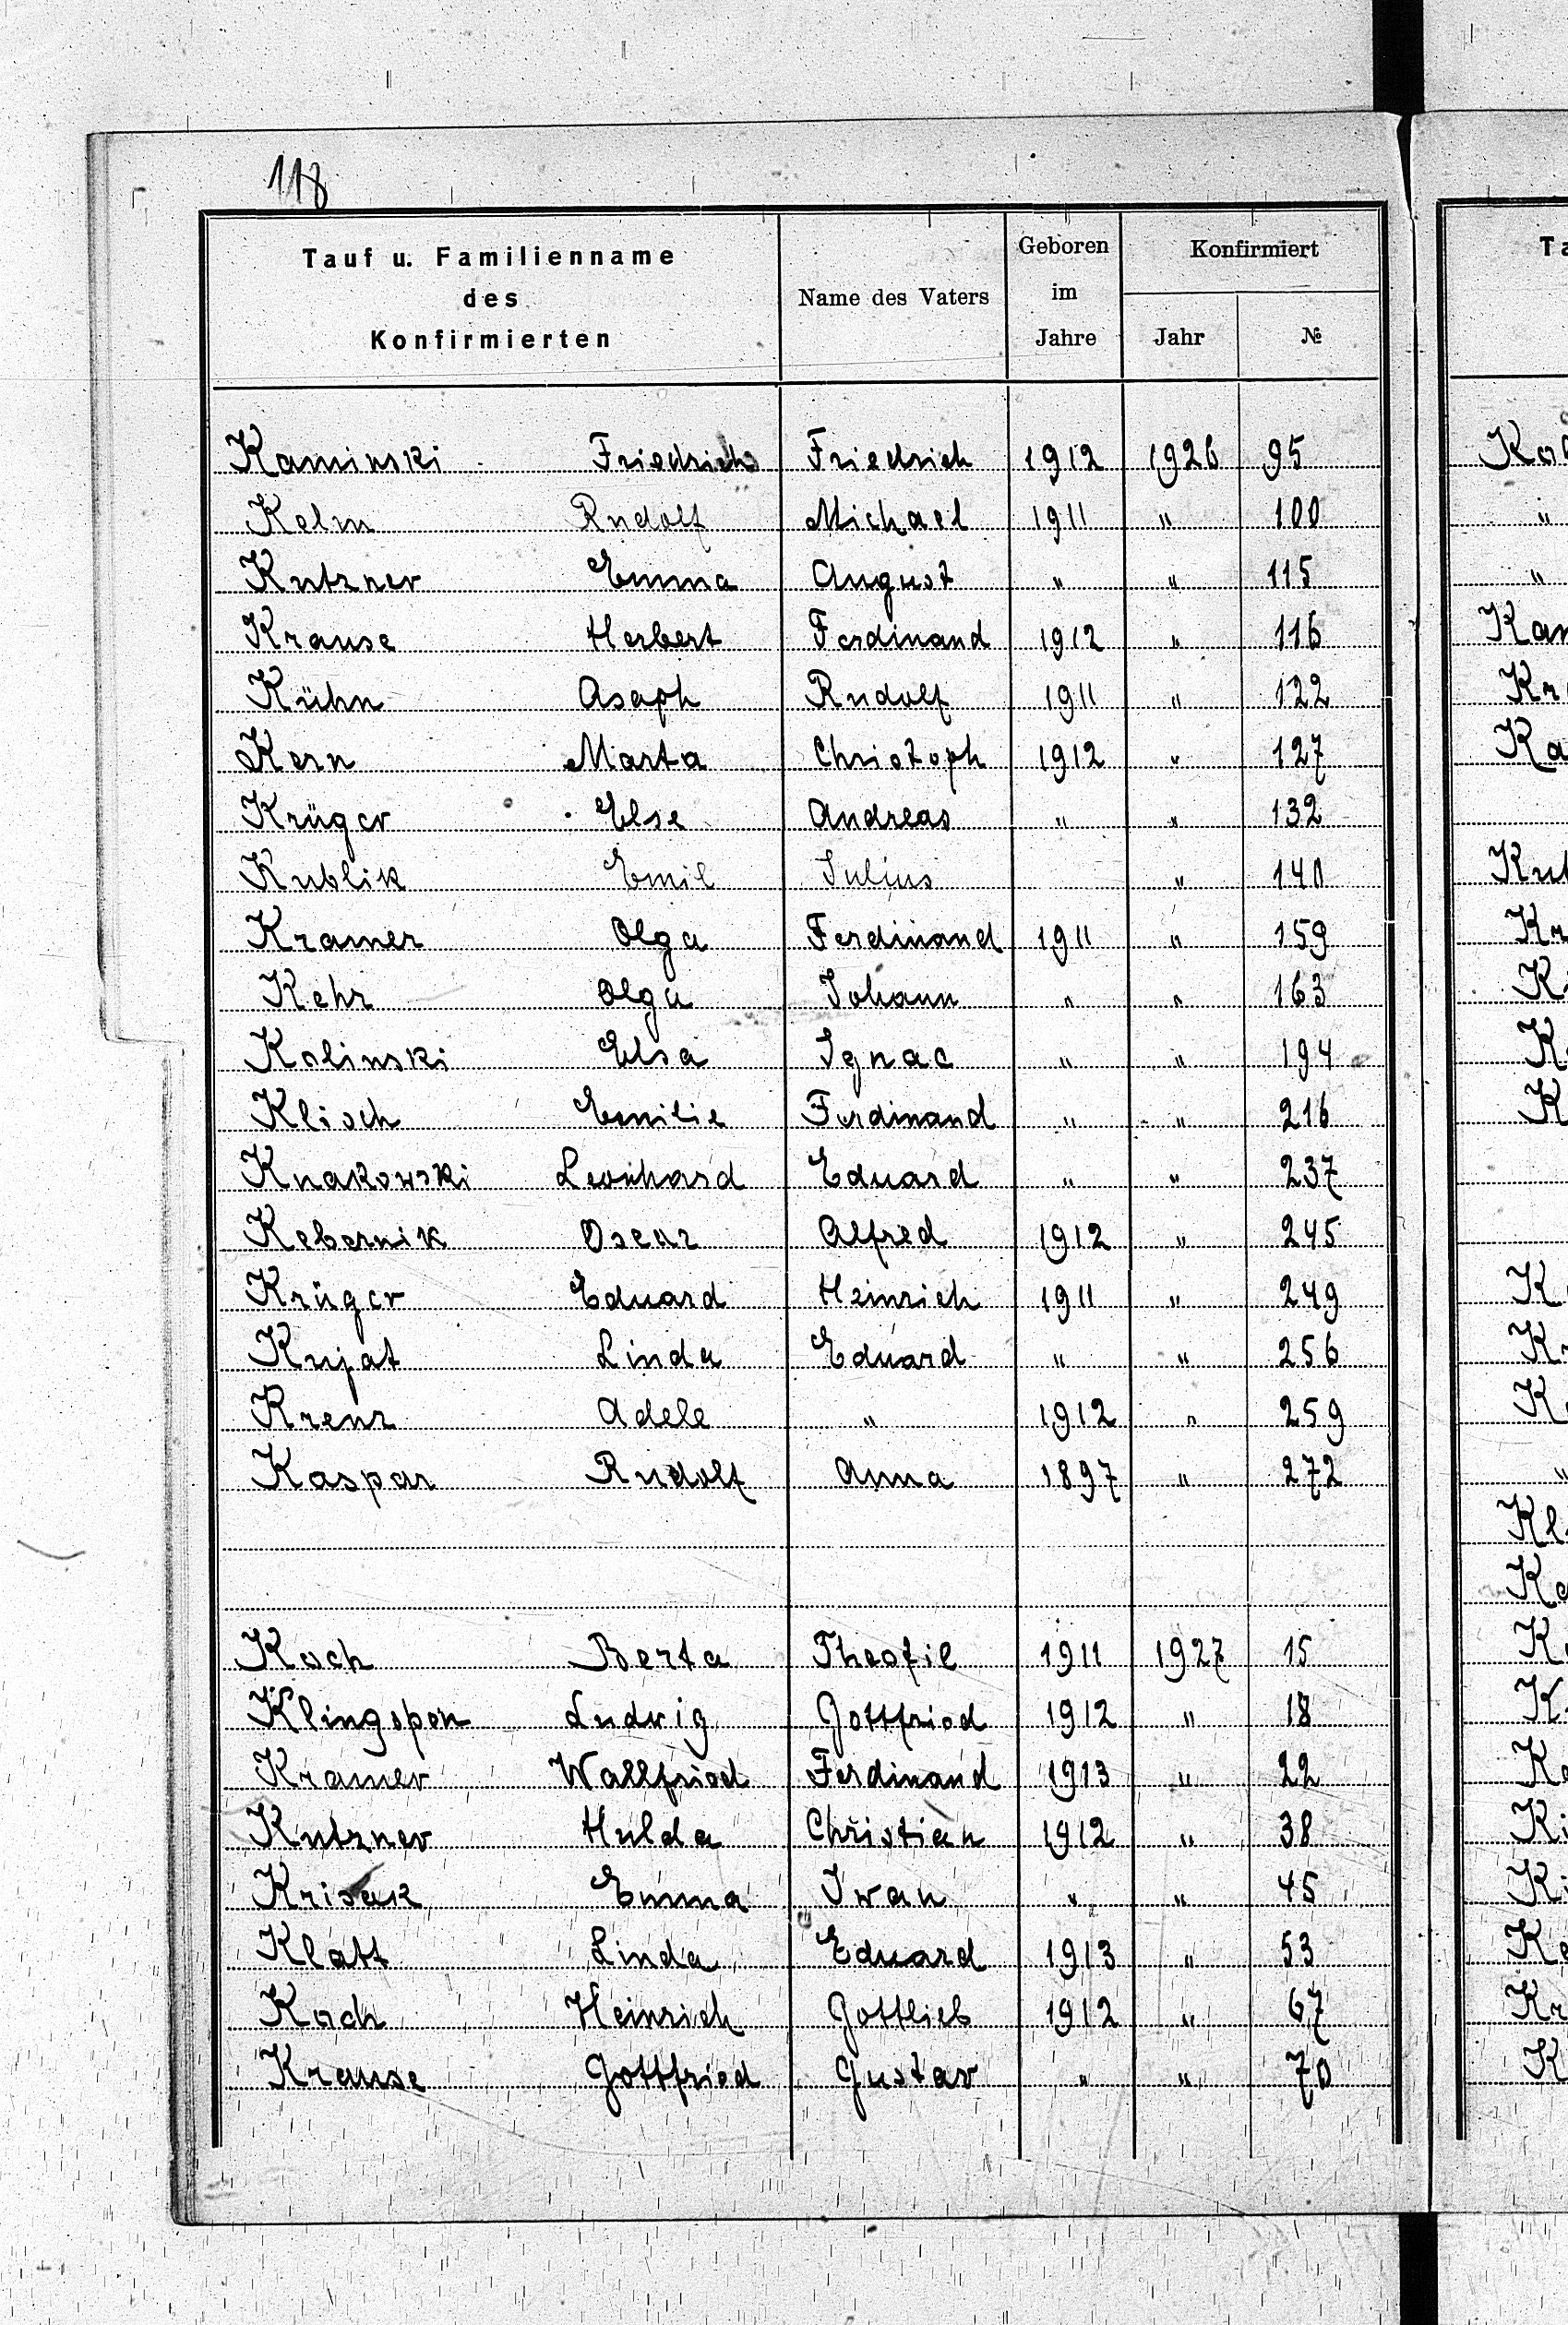 118
Tauf u. Familienname des Konfirmierten | Name des Vaters | Geboren im Jahre | Konfirmiert Jahr | №
Kaminski Friedrich Friedrich 1912 1926 95
Kelm Rudolf Michael 1911 " 100
Kutzner Emma August " " 115
Krause Herbert Ferdinand 1912 " 116
Kühn Asaph Rudolf 1911 " 122
Kern Marta Christoph 1912 " 127
Krüger Else Andreas " " 132
Kublik Emil Julius " 140
Kramer Olga Ferdinand 1911 " 159
Kehr Olga Johann " " 163
Kolinski Elsa Ignac " " 194
Klisch Emilie Ferdinand " " 216
Knakowski Leonhard Eduard " " 237
Kebernik Oscar Alfred 1912 " 245
Krüger Eduard Heinrich 1911 " 249
Kujat Linda Eduard " " 256
Krenz Adele " 1912 " 259
Kaspar Rudolf Anna 1897 " 272
Koch Berta Theofil 1911 1927 15
Klingspon Ludwig Gottfried 1912 " 18
Kramer Wallfried Ferdinand 1913 " 22
Kutzner Hulda Christian 1912 " 38
Emma Iwan " " 45
Klatt Linda Eduard 1913 " 53
Koch Heinrich Gottlieb 1912 " 67
Krause Gottfried Gustav " " 70